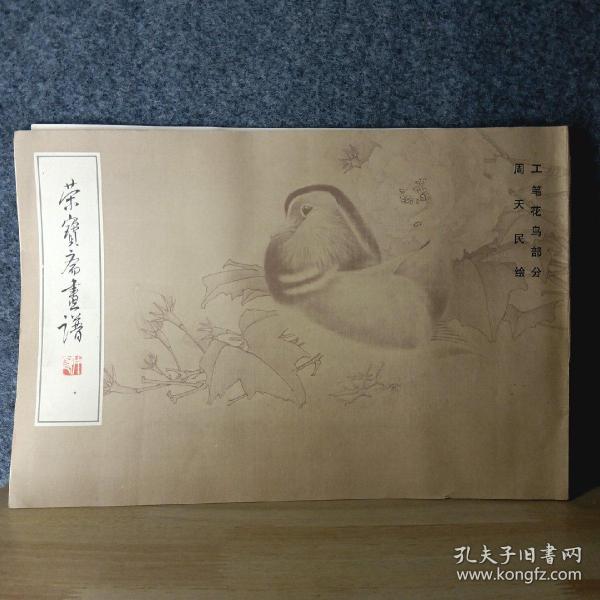 荣寶斋畫譜
工笔花鸟部分
周天民绘
孔夫子旧书网
www.kongfz.com